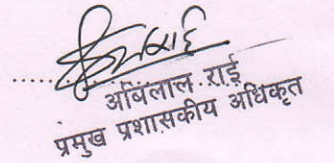 अबिलाल राई
प्रमुख प्रशासकीय अधिकृत